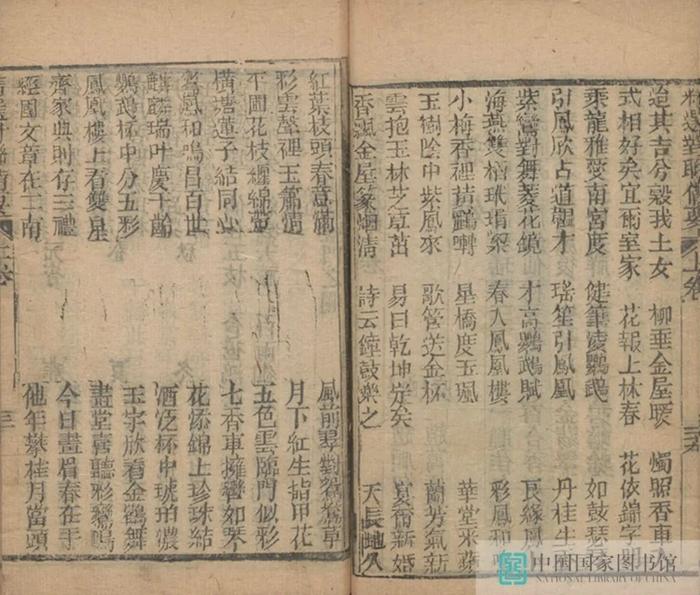 對聯備要 上卷
迨其吉兮穀我士女 柳垂金屋暖 燭照香車人
式相好矣宜爾室家 花報上林春 花依錦字明
乘龍雅愛南宮度 健筆凌鸚鵡 如鼓琴
引鳳欣占道韞才 瑤笙引鳳凰 丹桂生
紫鸞對舞菱花鏡 才高鸚鵡賦 良緣鳳
海燕雙棲玳瑁梁 春入鳳凰樓 彩鳳和
小梅香裡黃鸝囀 星橋度玉珮 華堂來
玉樹陰中紫鳳來 歌管送金杯 蘭芳氣新
雲抱玉林芝草茁 易曰乾坤定矣 宴爾新婚
香飄金屋篆烟清 詩云鐘鼓樂之 天長地久
紅葉枝頭春意滿 風前尋對鴛鴦草
彩雲聲裡玉簫清 月下紅生指甲花
平圃花枝纏錦蕚 五色雲臨門似彩
橫塘蓮子結同心 七香車擁轡如琴
鸞鳳和鳴昌百世 花添錦上珍珠結
麟麟瑞叶慶千齡 酒泛杯中琥珀濃
鸚鵡杯中分五彩 玉宇欣看金鶴舞
鳳凰樓上看雙星 畫堂喜聽彩鸞鳴
齊家典則存三禮 今日畫眉春在手
經國文章在二南 他年攀桂月當頭
上卷 三
中国国家图书馆
NATIONAL LIBRARY OF CHINA